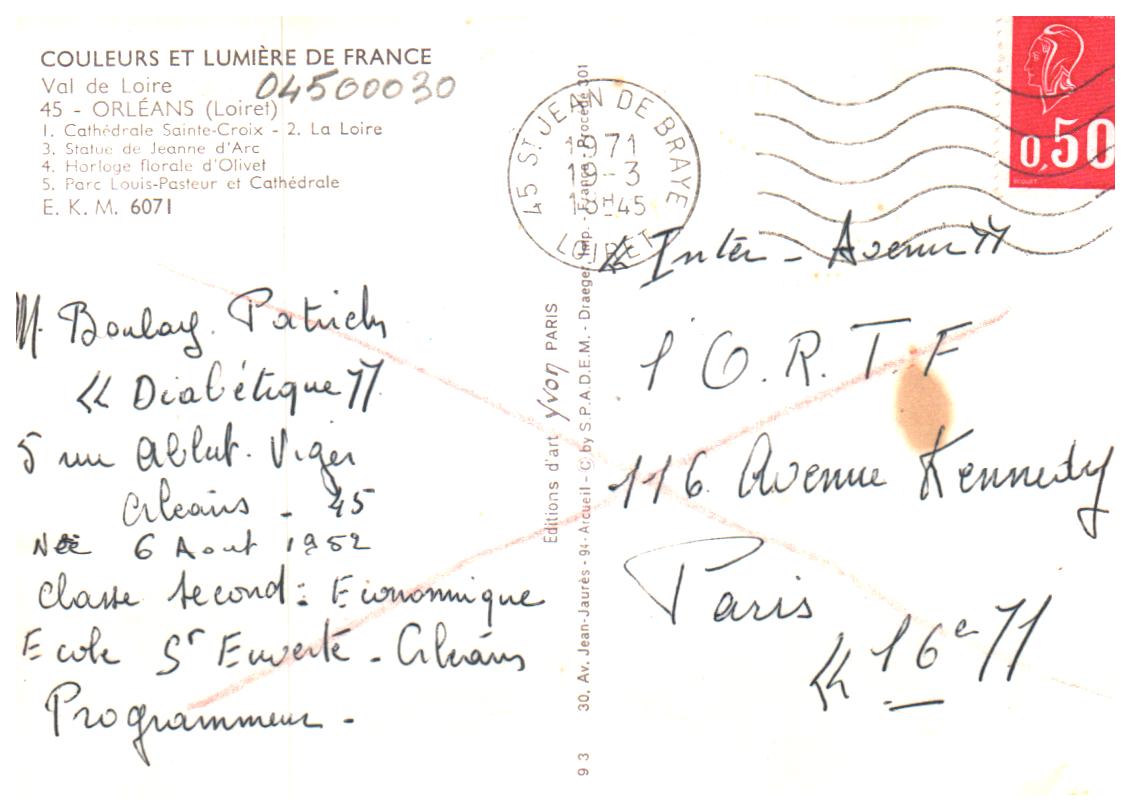 COULEURS ET LUMIÈRE DE FRANCE
Val de Loire
04500030
45 - ORLÉANS (Loiret)
1. Cathédrale Sainte-Croix - 2. La Loire
3. Statue de Jeanne d'Arc
4. Horloge florale d'Olivet
5. Parc Louis-Pasteur et Cathédrale
E. K. M. 6071
M. Boulay. Patrick
« Diabétique »
5 rue Ablut. Viger
Orléans - 45
Née 6 Aout 1952
Classe second : Economique
Ecole St Euverte - Orléans
Programmeur -
Editions d'art yvon PARIS
93 30, Av. Jean-Jaurès - 94-Arcueil - © by S.P.A.D.E.M. - Draeger, Imp. - France - Procédé 301
45 ST JEAN DE BRAYE
1971
19-3
18H45
LOIRET
0,50
« Inter - Avenir »
l'O.R.T.F
116 Avenue Kennedy
Paris
« 16e »